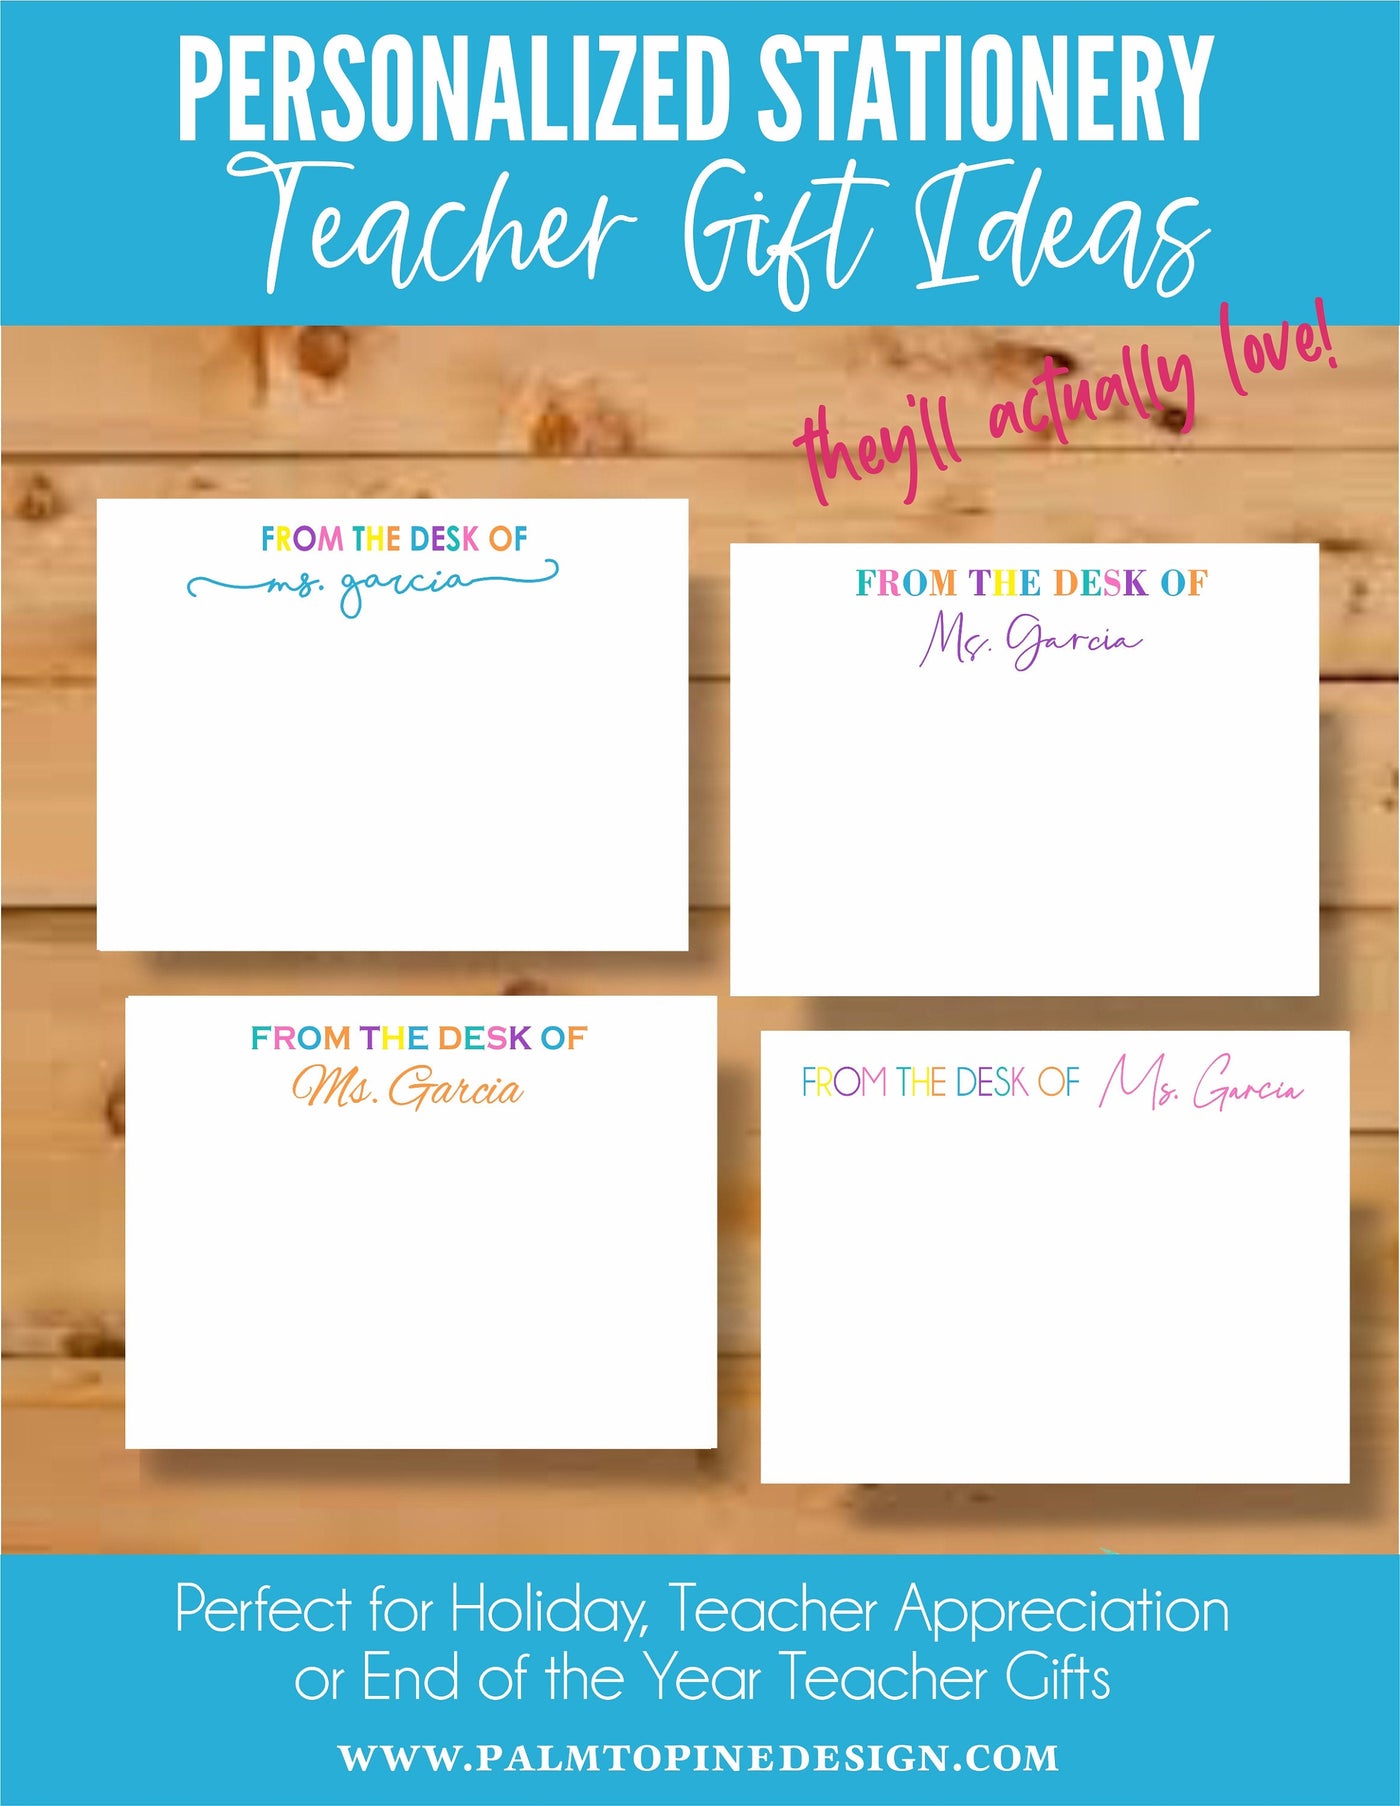 PERSONALIZED STATIONERY
Teacher Gift Ideas
they'll actually love!
FROM THE DESK OF
ms. garcia
FROM THE DESK OF
Ms. Garcia
FROM THE DESK OF
Ms. Garcia
FROM THE DESK OF Ms. Garcia
Perfect for Holiday, Teacher Appreciation
or End of the Year Teacher Gifts
WWW.PALMTOPINEDESIGN.COM